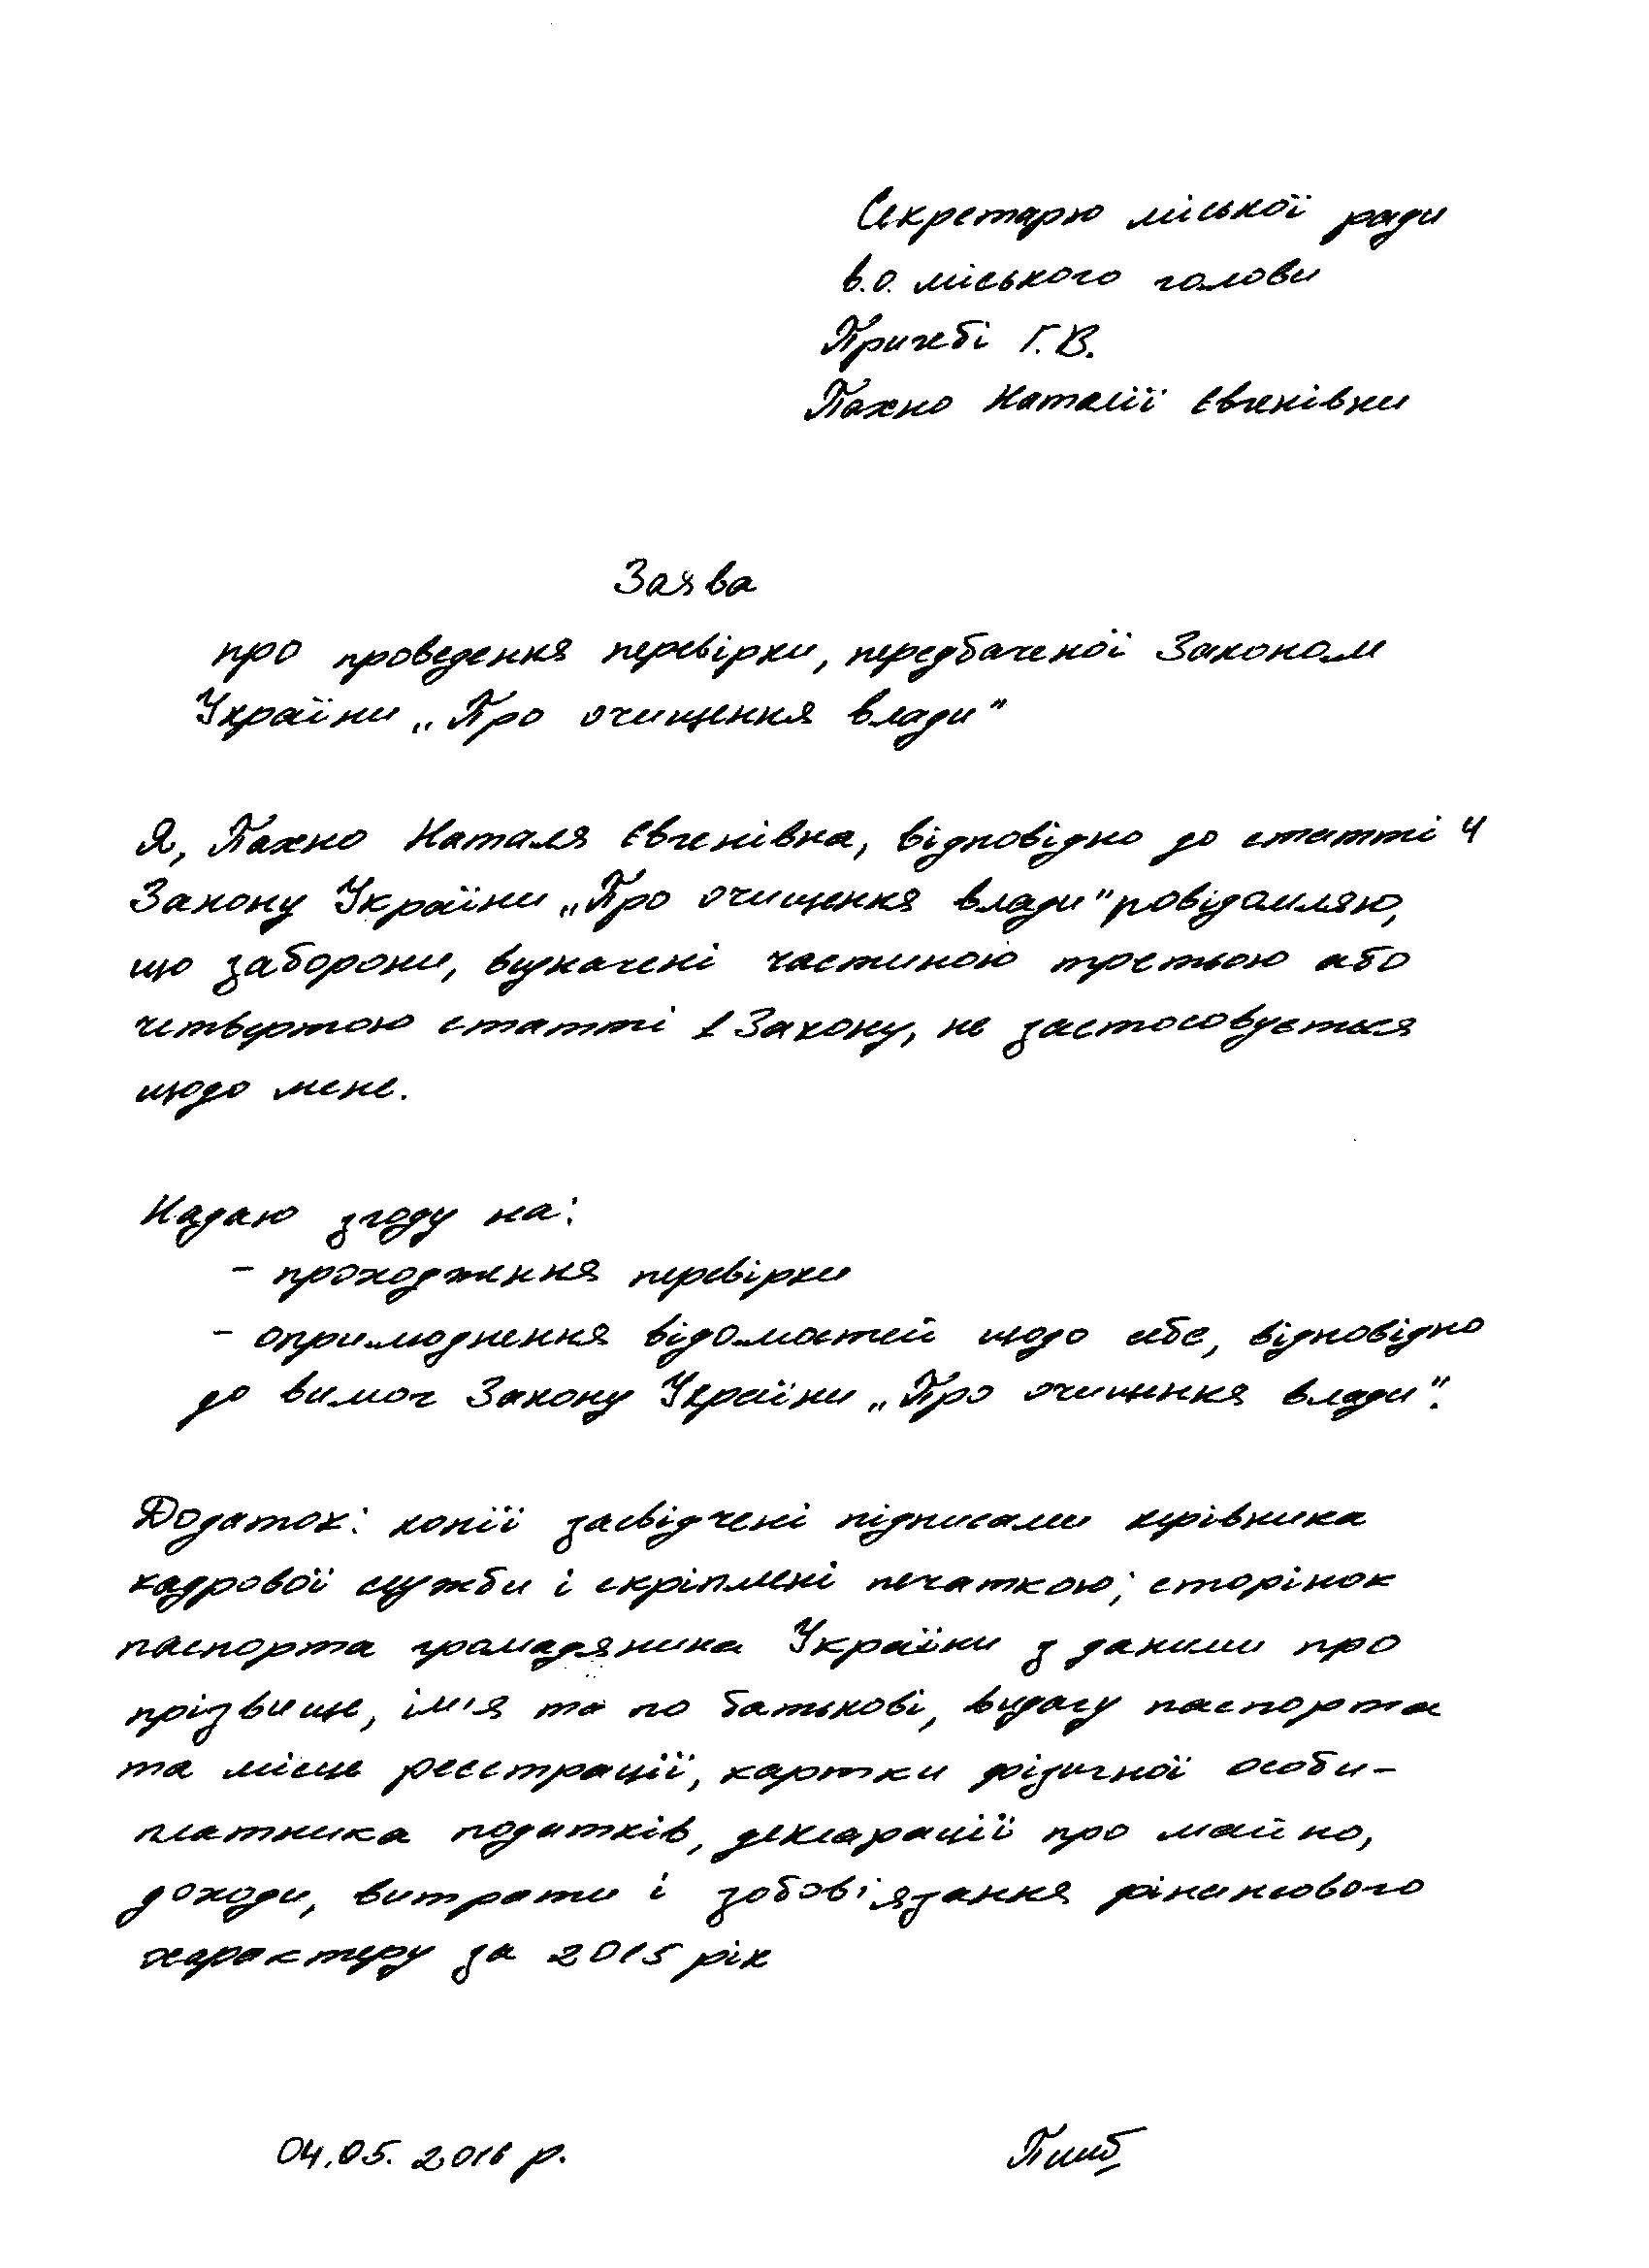 Секретарю міської ради
в.о. міського голови
Пригебі Г.В.
Пахно Наталії Євгенівни
Заява
про проведення перевірки, передбаченої Законом
України „Про очищення влади"
Я, Пахно Наталя Євгенівна, відповідно до статті 4
Закону України „Про очищення влади" повідомляю,
що заборони, визначені частиною третьою або
четвертою статті 1 Закону, не застосовується
щодо мене.
Надаю згоду на:
- проходження перевірки
- оприлюднення відомостей щодо себе, відповідно
до вимог Закону України „Про очищення влади".
Додаток: копії засвідчені підписами керівника
кадрової служби і скріплені печаткою; сторінок
паспорта громадянина України з даними про
прізвище, ім'я та по батькові, видачу паспорта
та місце реєстрації, картки фізичної особи-
платника податків, декларації про майно,
доходи, витрати і зобов'язання фінансового
характеру за 2015 рік
04.05.2016 р.